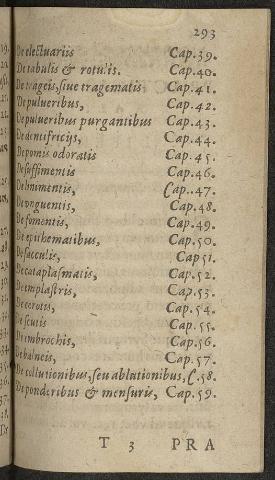 293
De electuariis Cap.39.
De tabulis & rotulis. Cap.40.
De trageis, siue tragematis Cap.41.
De pulueribus, Cap.42.
De pulueribus purgantibus Cap.43.
De dentifricijs, Cap.44.
De pomis odoratis Cap.45.
De suffimentis Cap.46
De linimentis, Cap..47.
De vnguentis, Cap.48.
De fomentis, Cap.49.
De epithematibus, Cap.50.
De sacculis, Cap 51.
De cataplasmatis, Cap.52.
De emplastris, Cap.53.
De cerotis, Cap.54.
De scutis Cap.55.
De embrochis, Cap.56.
De balneis, Cap.57.
De collutionibus, seu ablutionibus, C.58.
De ponderibus & mensuris, Cap.59.
T 3 PRA